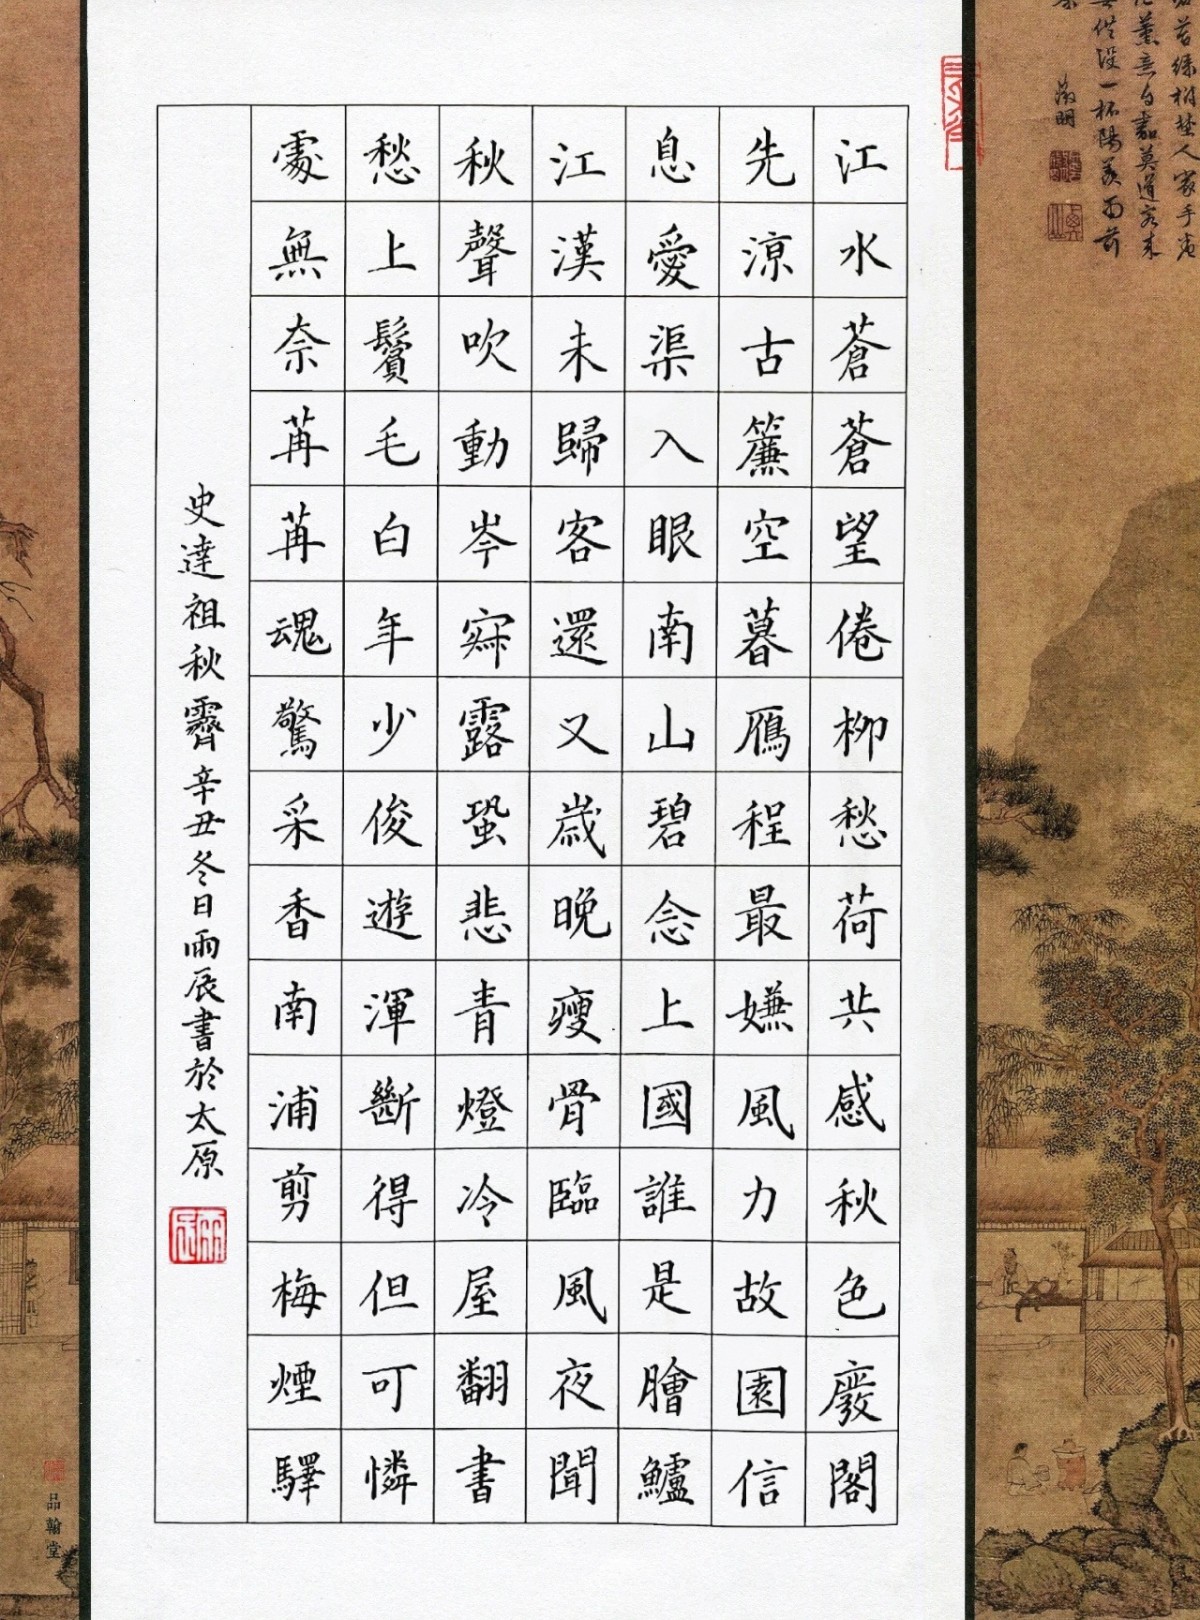 家手
自嘉莫道客來
供設一杯陽羨雨前
徵明
江水蒼蒼望倦柳愁荷共感秋色廢閣
先涼古簾空暮鴈程最嫌風力故園信
息愛渠入眼南山碧念上國誰是膾鱸
江漢未歸客還又歲晚瘦骨臨風夜聞
秋聲吹動岑寂露蛩悲青燈冷屋翻書
愁上鬢毛白年少俊遊渾斷得但可憐
處無奈苒苒魂驚采香南浦剪梅煙驛
史達祖秋霽辛丑冬日雨辰書於太原
雨辰
品翰堂